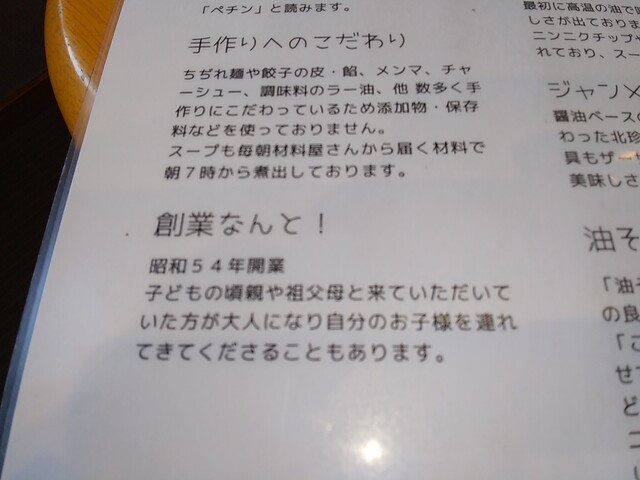 「ペチン」と読みます。
手作りへのこだわり
ちぢれ麺や餃子の皮・餡、メンマ、チャ
ーシュー、調味料のラー油、他 数多く手
作りにこだわっているため添加物・保存
料などを使っておりません。
スープも毎朝材料屋さんから届く材料で
朝7時から煮出しております。
創業なんと！
昭和５４年開業
子どもの頃親や祖父母と来ていただいて
いた方が大人になり自分のお子様を連れ
てきてくださることもあります。
最初に高温の油で
しさが出ておりま
ニンニクチップや
れており、スー
ジャンメ
醤油ベースの
わった北珍
具もザーサ
美味しさ
油そ
「油そ
の良
「こ
せて
ど
ニ